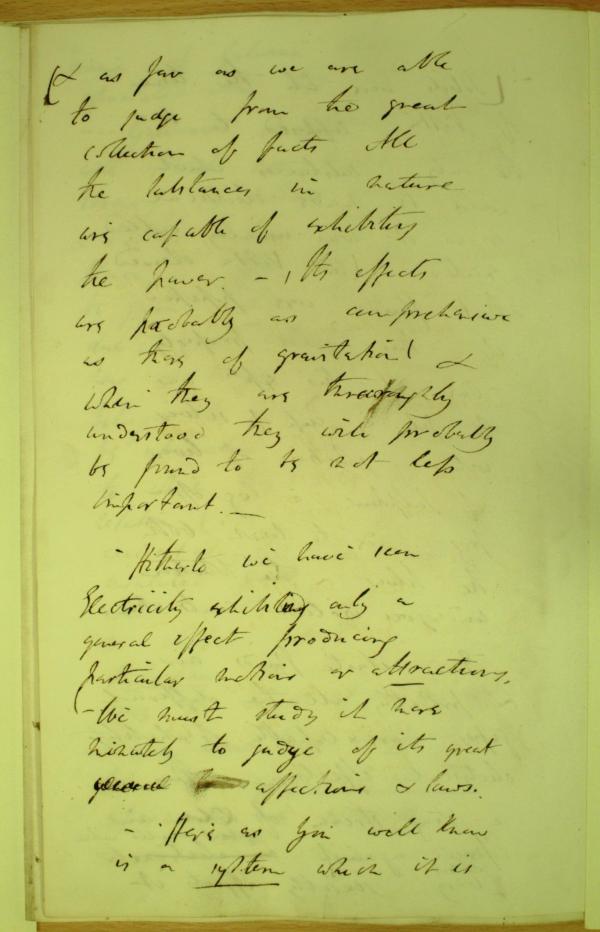 & as far as we are able
to judge from the great
collection of facts All
the substances in nature
are capable of exhibiting
the power. – , Its effects
are probably as comprehensive
as those of gravitation! &
when they are thoroughly
understood they will probably
be found to be not less
important. —
- Hitherto we have seen
Electricity exhibiting only a
general effect producing
particular motions or attractions.
- We must study it more
minutely to judge of its great
general affections & laws.
– Here as you well know
is a system which it is